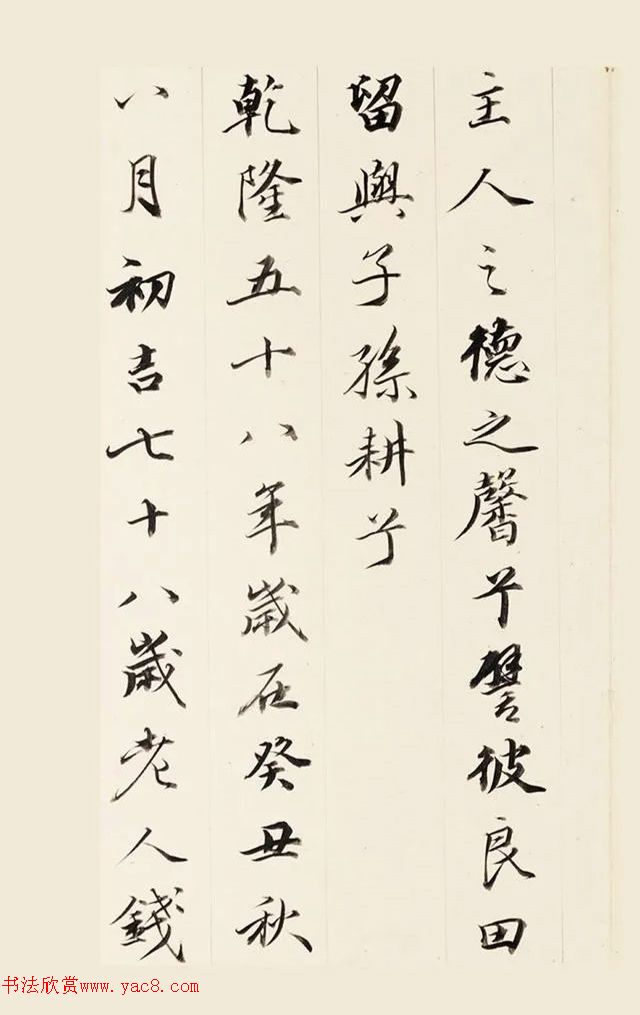 主人之德之馨兮譬彼良田
留與子孫耕兮
乾隆五十八年歲在癸丑秋
八月初吉七十八歲老人錢
书法欣赏www.yac8.com